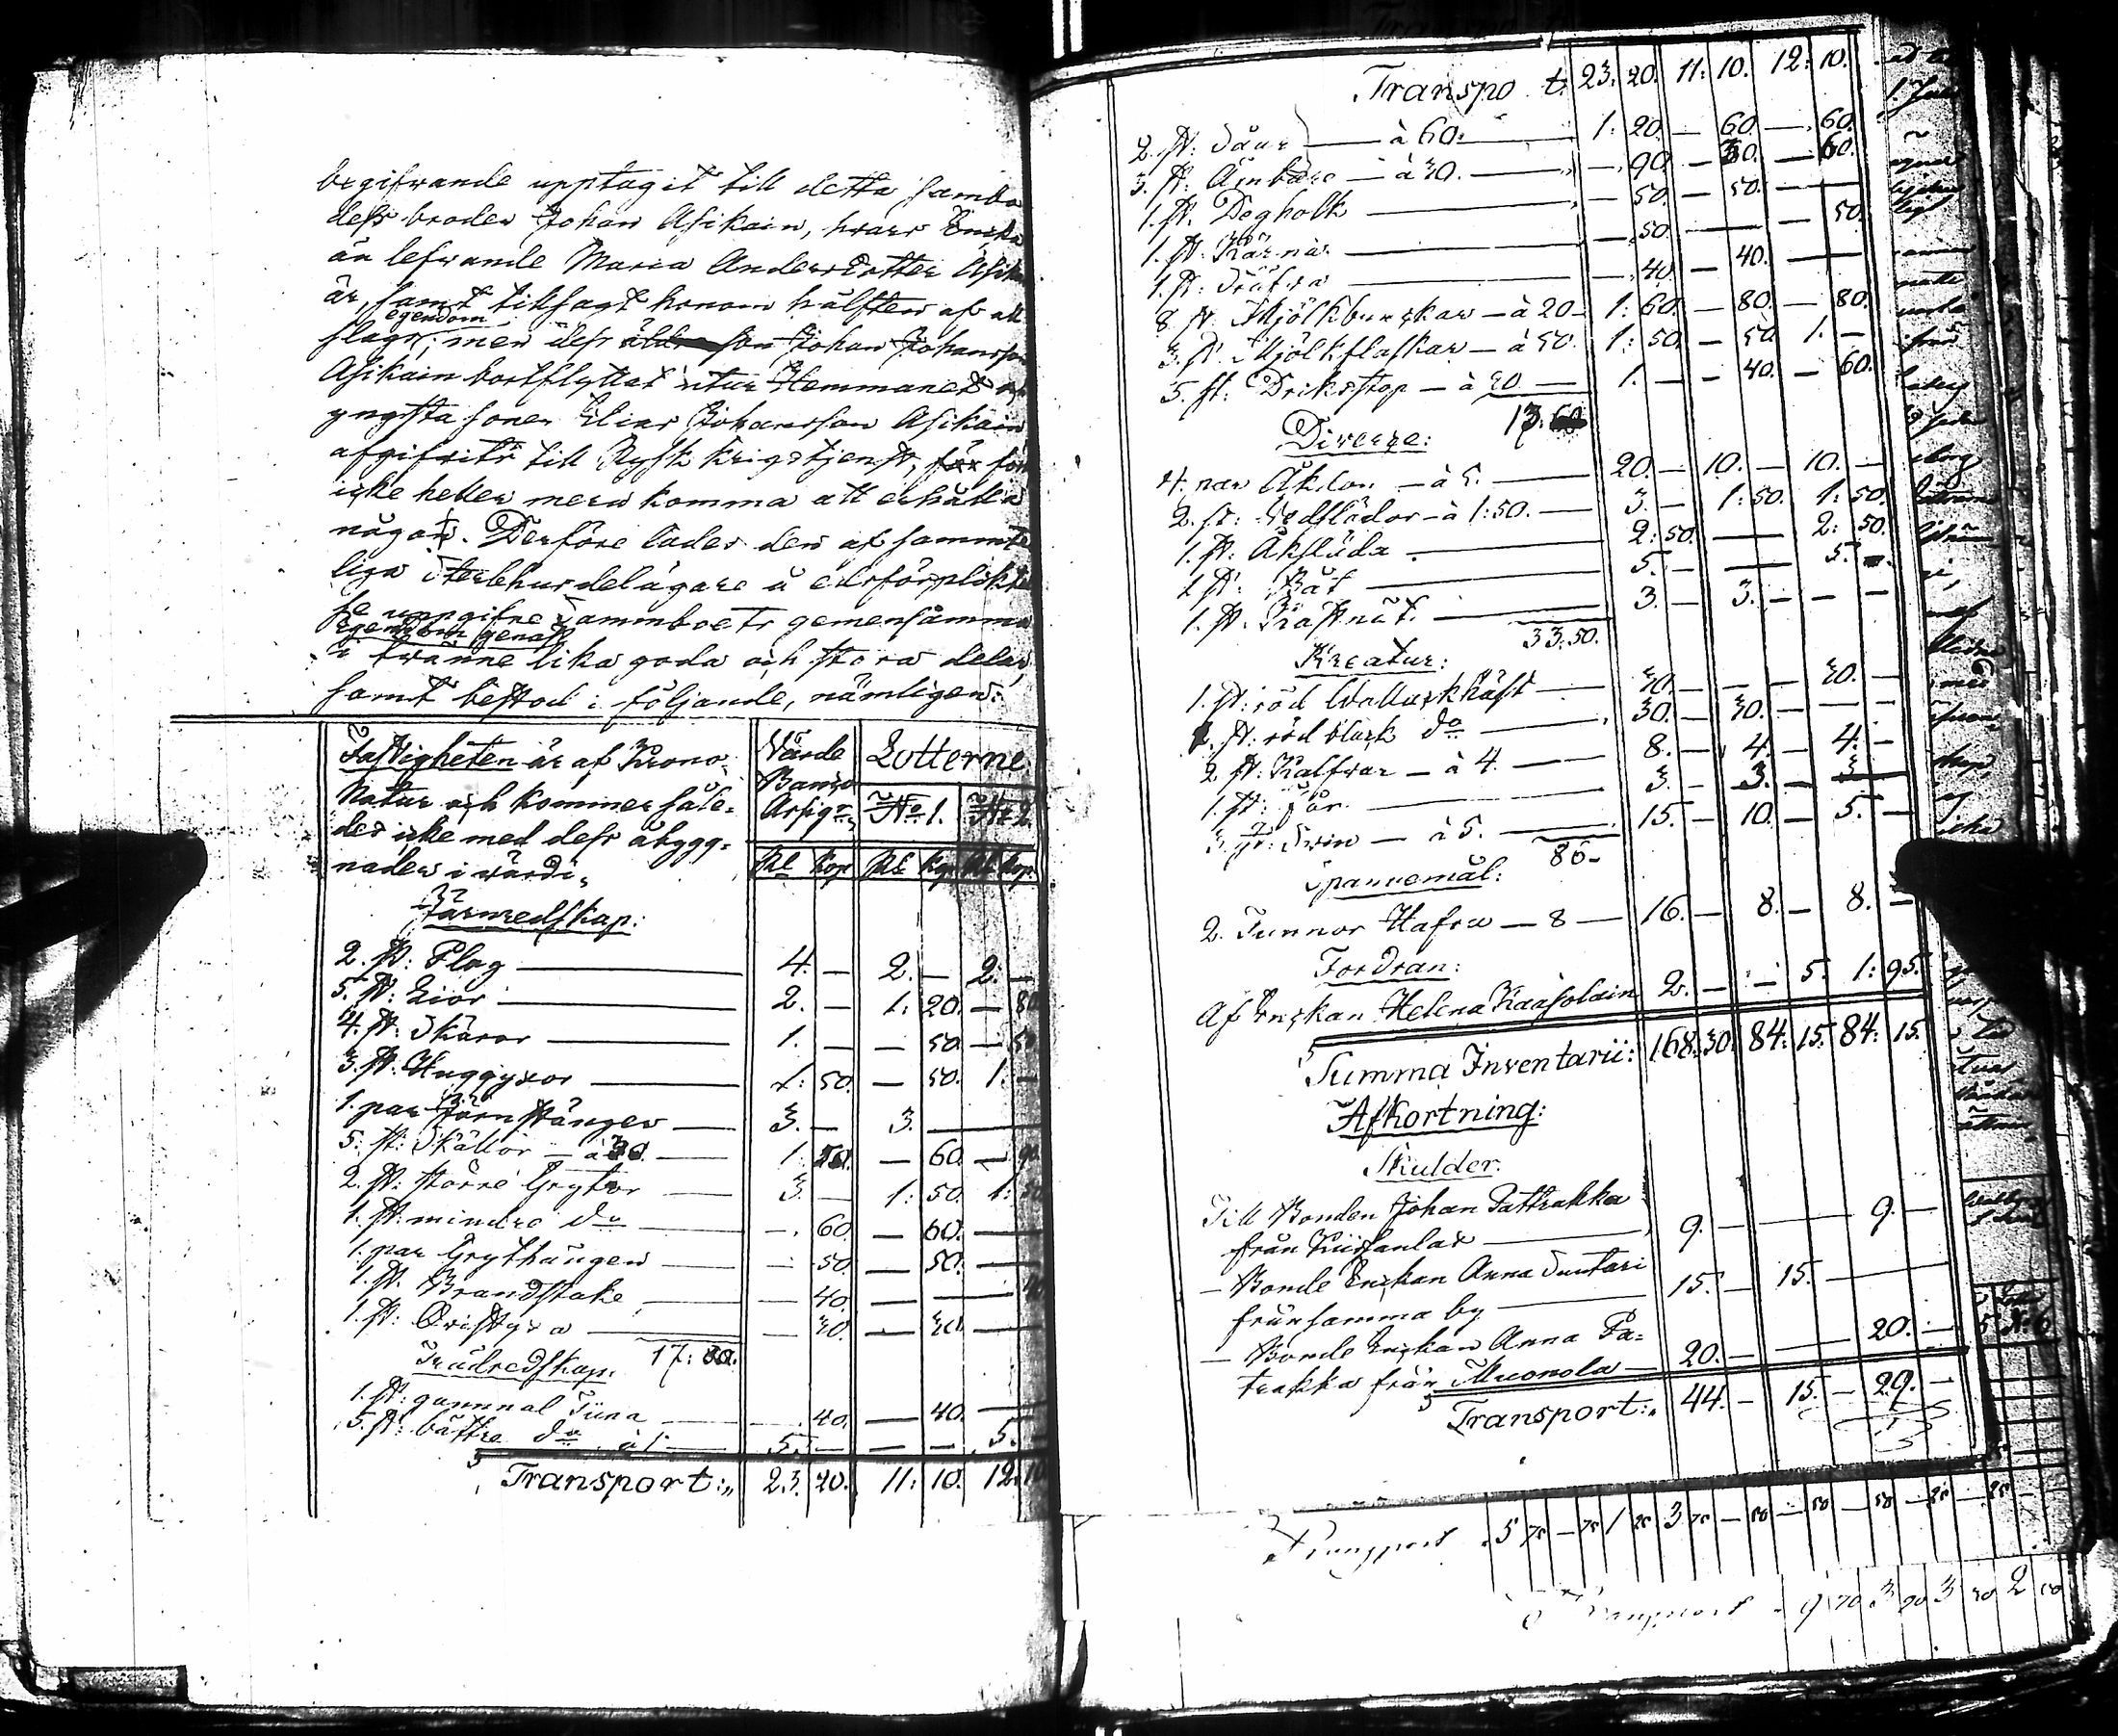 begifwande upptagit till detta sambo
dess broder Johan Asikain, hvars Enka
än lefwande Maria Andersdotter Asika
är, samt tillsagt honom hälften af all
egendom
slags; men dess äldre son Johan Johansson
Asikain bortflyttat utur Hemmanet
yngsta sonen Elias Johansson Asikain
afgifwits till Rysk krigstjenst, får
icke heller mera komma att erhålla
någon. Derföre lades den af sammte
liga Sterbhusdelägare å edsförplikt
uppgifne Sammboets gemensamma
Egendom genast
i twänne lika goda och stora delar,
samt bestod i följande, nämligen:
Fastigheten är af Krono-
Natur och kommer såle-
des icke med dess åbygg-
nader i värdi
Värde Banco Assign:
Lotterne
No 1. No 2.
Rl Kop Rl Kop Rl Kop.
Järnredskap:
2. st: Plog — 4. — 2. — 2. —
5. st: Liar — 2. — 1. 20. — 80
4. st: Skäror — 1. — — 50. — 50
3. st. Huggyxor — 1. 50. — 50. 1. —
1. par Järnstänger — 3. — 3. —
5. st: Skällor — à 30. — 1. 50. — 60. — 90.
2. st: större Grytor — 3. — 1: 50. 1: 50
1. st: mindre do — —. 60. — 60. —
1. par Grythängen — — 50. — 50. —
1. st. Brandstake — — 40. — — — 40
1. st: — 30. — 30. —
17: 80.
Trädredskap:
1. st: gammal Tiina — — 40. — 40. —
5. st: bättre do à 1 — 5. — — — 5. —
Transport: 23. 20. 11: 10. 12. 10
Transpo t. 23. 20. 11: 10. 12: 10.
2. st: Såar — à 60. — 1: 20. — 60. — 60.
3. st: Ämbare — à 30. — — 90. — 30. — 60.
1. st. Degholk — — 50. — 50. —
1. st. Kärna — — 50. — — — 50.
1. st: — 40. — 40. —
8. st. Mjölkbunkar — à 20 — 1: 60. — 80. — 80.
3. st. Mjölkflaskar — à 50. 1: 50. — 50. 1. —
5. st: Dricksstop — à 20 — 1. — — 40. — 60.
13.
Diverse:
4. par Åkdon — à 5. — 20. — 10. — 10. —
2. st: Wedslädor — à 1:50. — 3. — 1: 50. 1: 50.
1. st. Åksläda — 2: 50. — 2: 50.
1. st: Båt — 5. — — 5. —
1. st. — 3. — 3. — — —
33:50.
Kreatur:
1. st: röd Wallackhäst — 30. — — — 30. —
1. st: röd black do — 30. — 30. — — —
2. st. Kalfwar — à 4. — 8. — 4. — 4. —
1. st: Får — 3. — 3. —
3. st: Swin — à 5. — 15. — 10. — 5. —
86 —
Spannemål:
2. Tunnor Hafra — 8 — 16. — 8. — 8. —
Fordran:
Af Enkan Helena 2. — — 5. 1: 95.
Summa Inventarii: 168. 30. 84: 15. 84: 15.
Afkortning:
Skulder.
Till Bonden Johan Pattrakka
från — 9. — — 9. —
— Bonde Enkan Anna Suutari
från samma by — 15. — 15. —
— Bonde Enkan Anna Pa-
trakka från Muonola — 20. — — 20. —
Transport: 44. — 15. — 29. —
Transport 5 75 — 75 1 25 3 75 — 50 — 50 — 50 — 25 — 25 —
Transport 9 70 3 90 3 30 2 50